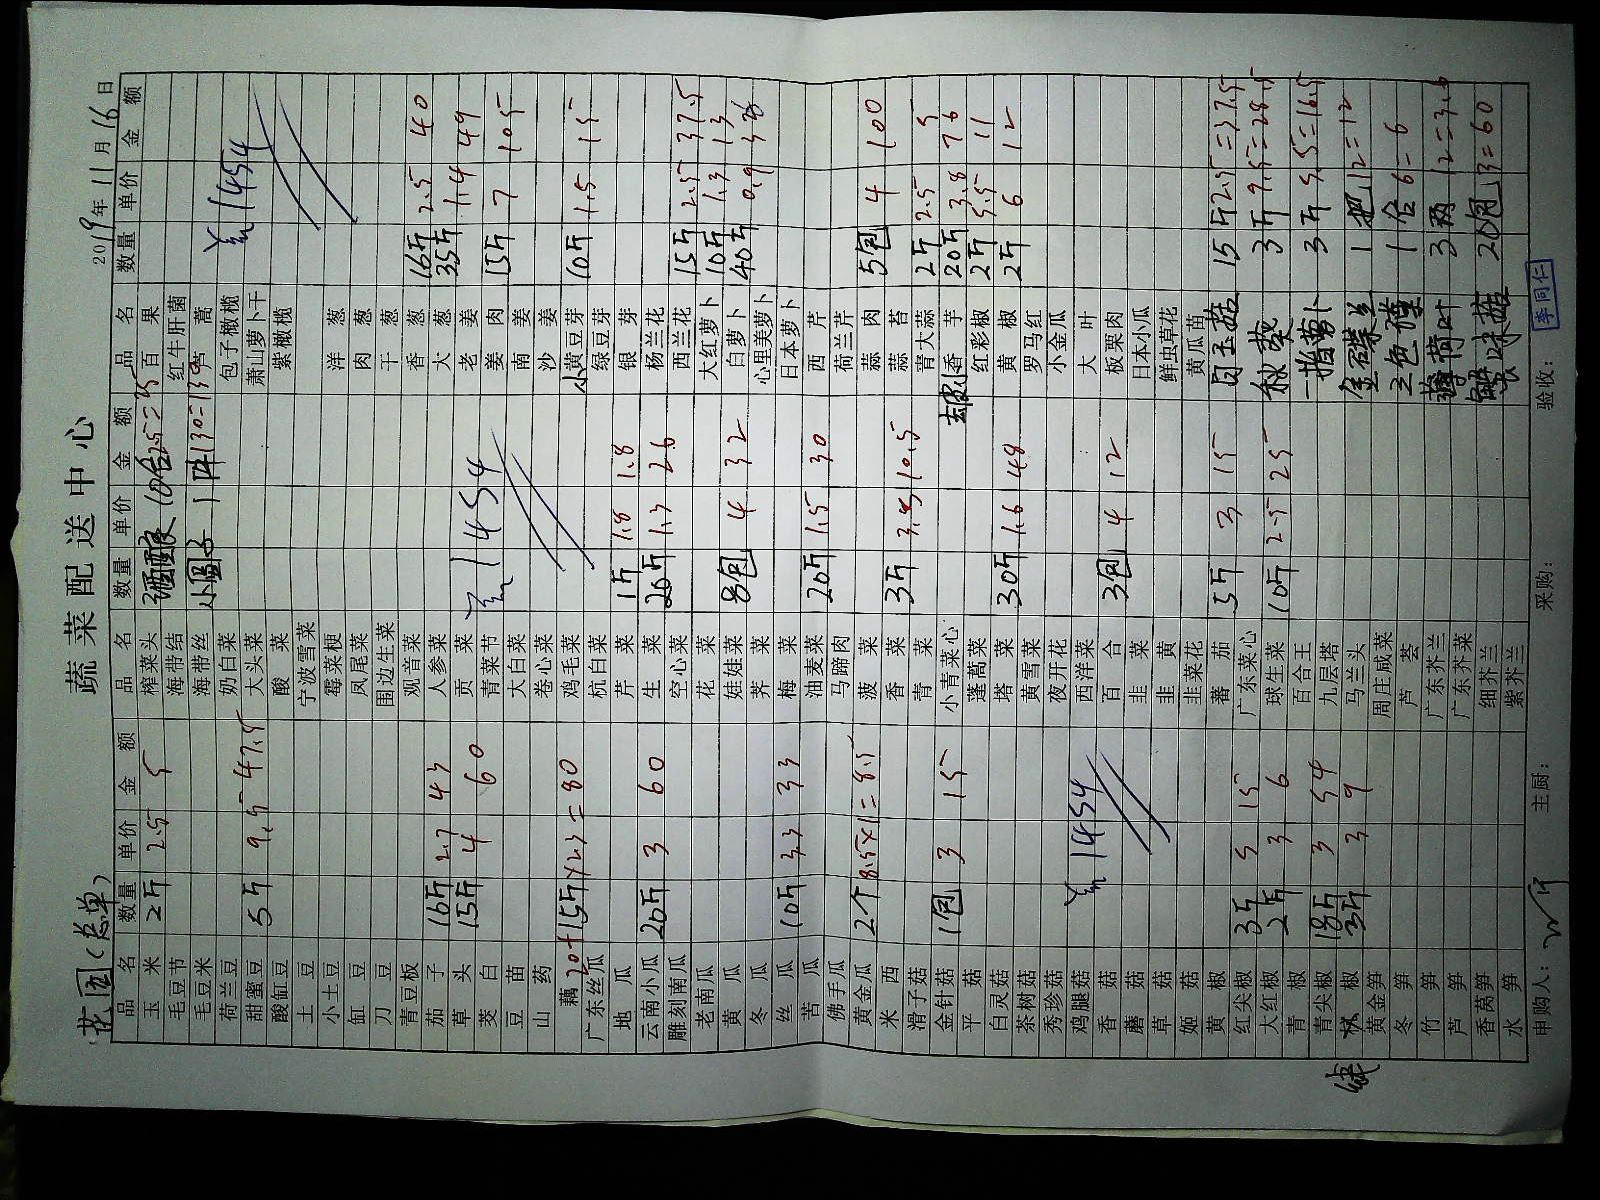 蔬菜配送中心
花园(总单)
2019年11月16日
品名 数量 单价 金额 品名 数量 单价 金额 品名 数量 单价 金额
玉米 2斤 2.5 5 榨菜头 酒酿 10合2.5=25 百果
毛豆节 海带结 红牛肝菌
毛豆米 海带丝 小圆子 130=130 芦蒿
荷兰豆 奶白菜 包子橄榄 ¥1454
甜蜜豆 5斤 9.5 47.5 大头菜 萧山萝卜干
酸缸豆 酸菜 紫橄榄
土豆 宁波雪菜
小土豆 霉菜梗 洋葱
缸豆 凤尾菜 肉葱
刀豆 围边生菜 干葱
青豆板 观音菜 香葱 16斤 2.5 40
茄子 16斤 2.7 43 人参菜 大葱 35斤 1.4 49
草头 15斤 4 60 贡菜 ¥1454 老姜
茭白 青菜节 姜肉 15斤 7 105
豆苗 大白菜 南姜
山药 卷心菜 沙姜
藕 20+15斤×2.3=80 鸡毛菜 小黄豆芽 10斤 1.5 15
广东丝瓜 杭白菜 绿豆芽
地瓜 芹菜 1斤 1.8 1.8 银芽
云南小瓜 20斤 3 60 生菜 20斤 1.3 26 杨兰花
雕刻南瓜 空心菜 西兰花 15斤 2.5 37.5
老南瓜 花菜 大红萝卜 10斤 1.3 13
黄瓜 娃娃菜 8包 4 32 白萝卜 40斤 0.9 36
冬瓜 荠菜 心里美萝卜
丝瓜 10斤 3.3 33 梅菜 日本萝卜
苦瓜 油麦菜 20斤 1.5 30 西芹
佛手瓜 马蹄肉 荷兰芹
黄金瓜 2个 8.5×1=8.5 菠菜 蒜肉 5包 4 100
米西 香菜 3斤 3.5 10.5 蒜苔
滑子菇 青菜 青大蒜 2斤 2.5 5
金针菇 1包 3 15 小青菜心 去皮香芋 20斤 3.8 76
平菇 蓬蒿菜 红彩椒 2斤 5.5 11
白灵菇 塔菜 30斤 1.6 48 黄椒 2斤 6 12
茶树菇 黄雪菜 罗马红
秀珍菇 夜开花 小金瓜
鸡腿菇 ¥1454 西洋菜 大叶
香菇 百合 3包 4 12 板栗肉
蘑菇 韭菜 日本小瓜
草菇 韭黄 鲜虫草花
姬菇 韭菜花 黄瓜苗
黄椒 蕃茄 5斤 3 15 白玉菇 15斤 2.5=37.5
红尖椒 3斤 5 15 广东菜心
大红椒 2斤 3 6 球生菜 10斤 2.5 25 秋葵 3斤 9.5=28.5
青椒 百合王 一指萝卜 3斤 5.5=16.5
青尖椒 18斤 3 54 九层塔
椒 3斤 3 9 马兰头 金碟兰 1把 12=12
黄金笋 周庄咸菜
冬笋 芦荟 三色堇 1合 6=6
竹笋 广东芥兰 薄荷叶 3两 12=3.6
芦笋 广东芥菜
香莴笋 细芥兰 蟹味菇 20包 3=60
水笋 紫芥兰
申购人: 主厨: 采购: 验收: 李同仁